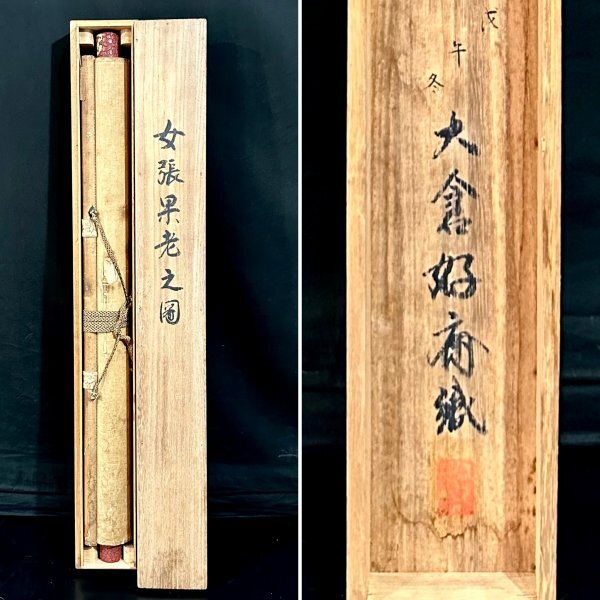 女張果老之圖
戊午冬
大倉好斎織